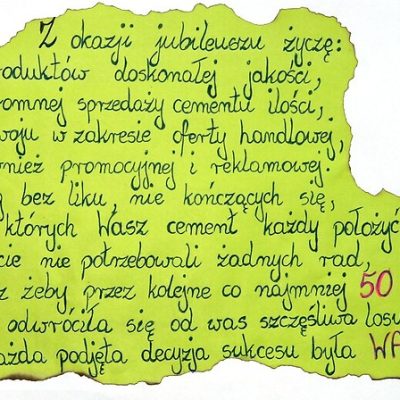 Z okazji jubileuszu życzę:
roduktów doskonałej jakości,
romnej sprzedaży cementu ilości,
woju w zakresie oferty handlowej,
wnież promocyjnej i reklamowej.
bez liku, nie kończących się,
których Wasz cement każdy położyć
cie nie potrzebowali żadnych rad,
z żeby, przez kolejne co najmniej 50
odwróciła się od was szczęśliwa losu
ażda podjęta decyzja sukcesu była WA